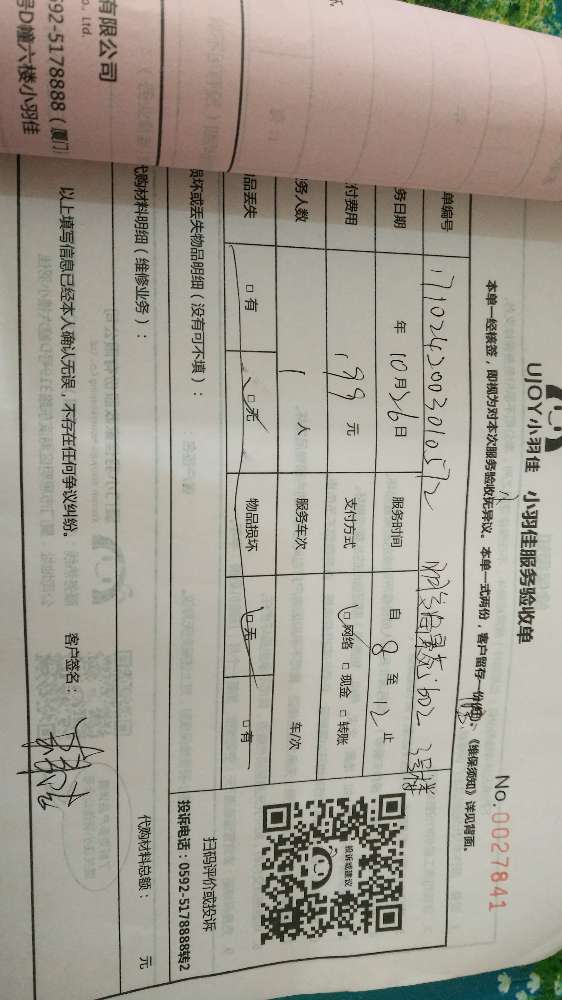 有限公司
Co. Ltd.
592-5178888（厦门
号D幢六楼小羽佳
UJOY小羽佳 小羽佳服务验收单
No.0027841
本单一经核签，即视为对本次服务验收无异议。本单一式两份，客户留存一份 《维保须知》详见背面。
单编号 1710242003010572 602 3号楼
务日期 年 10月26日 服务时间 自 8 至 12 止
付费用 199 元 支付方式 □网络 □现金 □转账
务人数 1 人 服务车次 车/次
品丢失 □有 □无 物品损坏 □无 □有
损坏或丢失物品明细（没有可不填）：
投诉或建议
扫码评价或投诉
投诉电话：0592-5178888转2
代购材料明细（维修业务）：
代购材料总额： 元
以上填写信息已经本人确认无误，不存在任何争议纠纷。 客户签名：